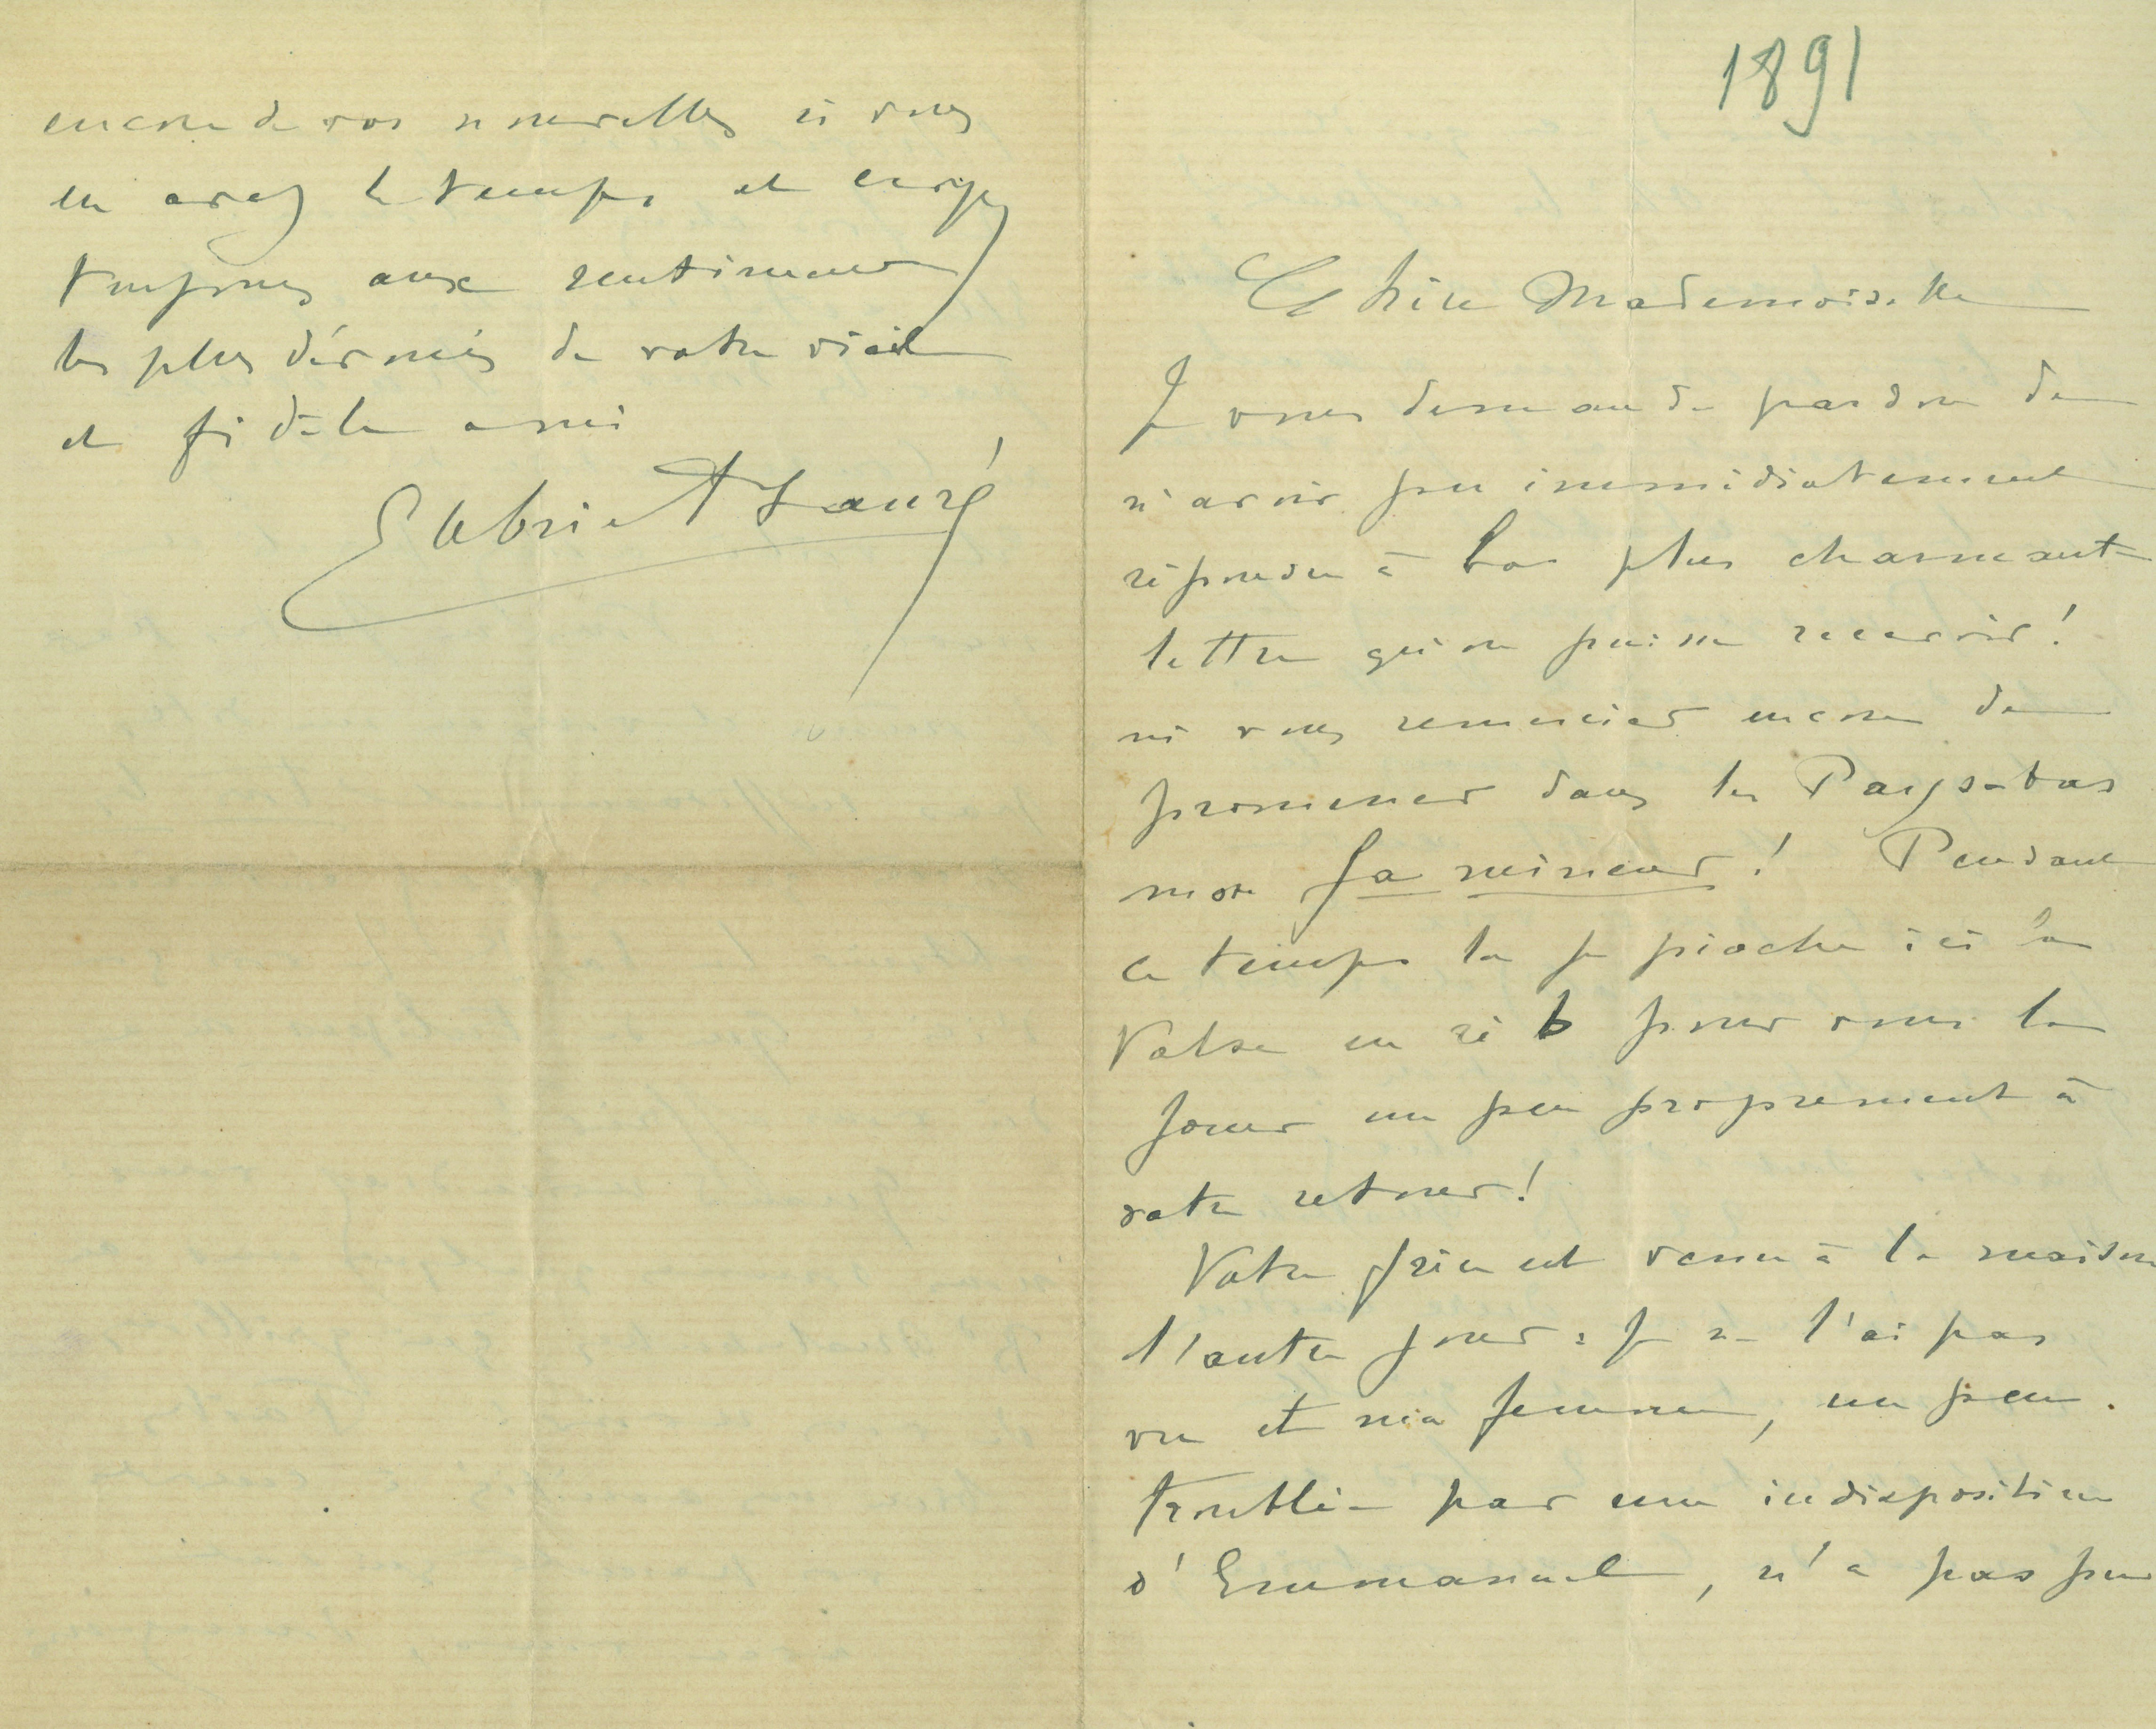 1891
Chère Mademoiselle
Je vous demande pardon de
n'avoir pu immédiatement
répondre à la plus charmante
lettre qu'on puisse recevoir!
ni vous remercier encore de
promener dans les Pays-bas
mon fa mineur! Pendant
ce temps là je pioche ici la
Valse en ré b pour vous la
jouer un peu proprement à
votre retour!
Votre frère est venu à la maison
l'autre jour : je ne l'ai pas
vu et ma femme, un peu
troublée par une indisposition
d'Emmanuel, n'a pas pu
encore de vos nouvelles si vous
en avez le temps et croyez
toujours aux sentiments
les plus dévoués de votre vieil
et fidèle ami
Gabriel Fauré